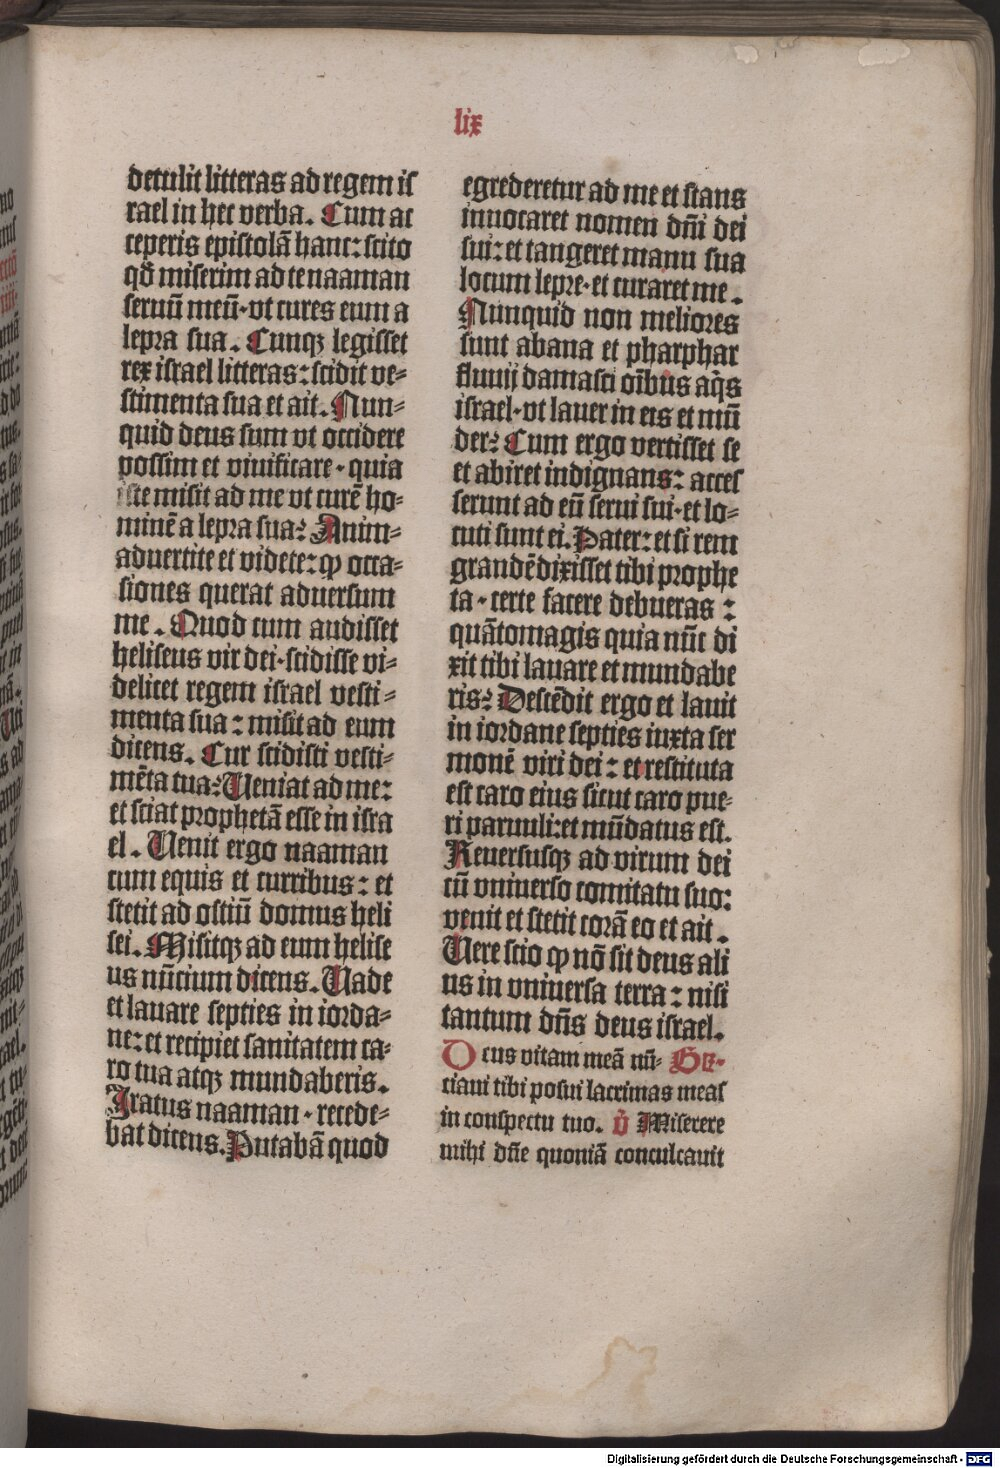 lix
detulit litteras ad regem is
rael in hec verba. Cum ac
ceperis epistolā hanc: scito
qd̄ miserim ad te naaman
seruū meū·vt cures eum a
lepra sua. Cunqꝫ legisset
rex israel litteras: scidit ve⸗
stimenta sua et ait. Nun⸗
quid deus sum vt occidere
possim et viuificare·quia
iste misit ad me vt curē ho⸗
minē a lepra sua? Anim⸗
aduertite et videte: ꝙ occa⸗
siones querat aduersum
me. Quod cum audisset
heliseus vir dei·scidisse vi⸗
delicet regem israel vesti⸗
menta sua: misit ad eum
dicens. Cur scidisti vesti⸗
mēta tua? Ueniat ad me:
et sciat prophetā esse in isra
el. Uenit ergo naaman
cum equis et curribus: et
stetit ad ostiū domus heli
sei. Misitqꝫ ad eum helise
us nūcium dicens. Uade
et lauare septies in iorda⸗
ne: et recipiet sanitatem ca⸗
ro tua atqꝫ mundaberis.
Iratus naaman·recede⸗
bat dicens. Putabā quod
egrederetur ad me et stans
inuocaret nomen dn̄i dei
sui: et tangeret manu sua
locum lepre·et curaret me.
Nunquid non meliores
sunt abana et pharphar
fluuij damasci oībus aq̄s
israel·vt lauer in eis et mū
der? Cum ergo vertisset se
et abiret indignans: acces
serunt ad eū serui sui·et lo⸗
cuti sunt ei. Pater: et si rem
grandē dixisset tibi prophe
ta·certe facere debueras:
quātomagis quia nūc di
xit tibi lauare et mundabe
ris? Descēdit ergo et lauit
in iordane septies iuxta ser
monē viri dei: et restituta
est caro eius sicut caro pue⸗
ri paruuli: et mūdatus est.
Reuersusqꝫ ad virum dei
cū vniuerso comitatu suo:
venit et stetit corā eo et ait.
Uere scio ꝙ nō sit deus ali
us in vniuersa terra: nisi
tantum dn̄s deus israel.
Deus vitam meā nū⸗ Gr̄.
ciaui tibi posui lacrimas meas
in conspectu tuo. v̄ Miserere
mihi dn̄e quoniā conculcauit
Digitalisierung gefördert durch die Deutsche Forschungsgemeinschaft - DFG